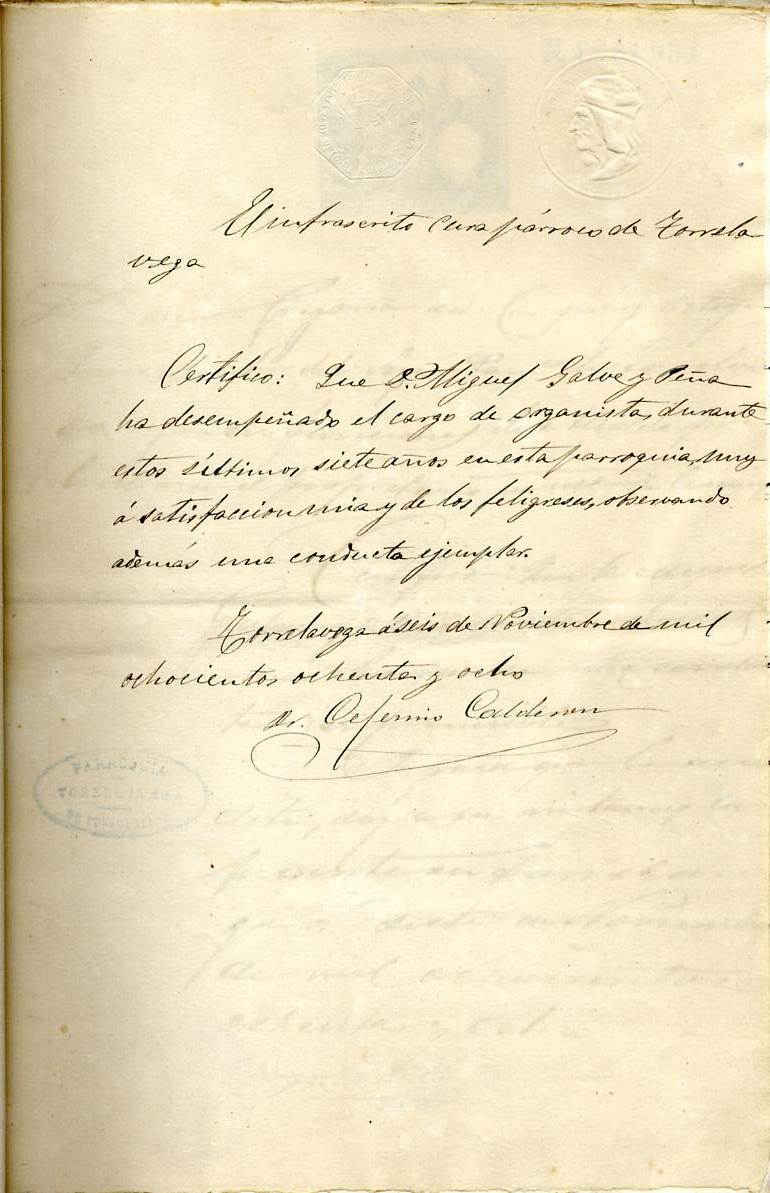 El infrascrito Cura párroco de Torrela
vega
Certifico: Que D. Miguel Galve y Peña
ha desempeñado el cargo de organista, durante
estos últimos siete años en esta parroquia, muy
á satisfaccion mia y de los feligreses, observando
además una conducta ejemplar.
Torrelavega á seis de Noviembre de mil
ochocientos ochenta y ocho
Dr. Ceferino Calderon
PARROQUIA
TORRELAVEGA